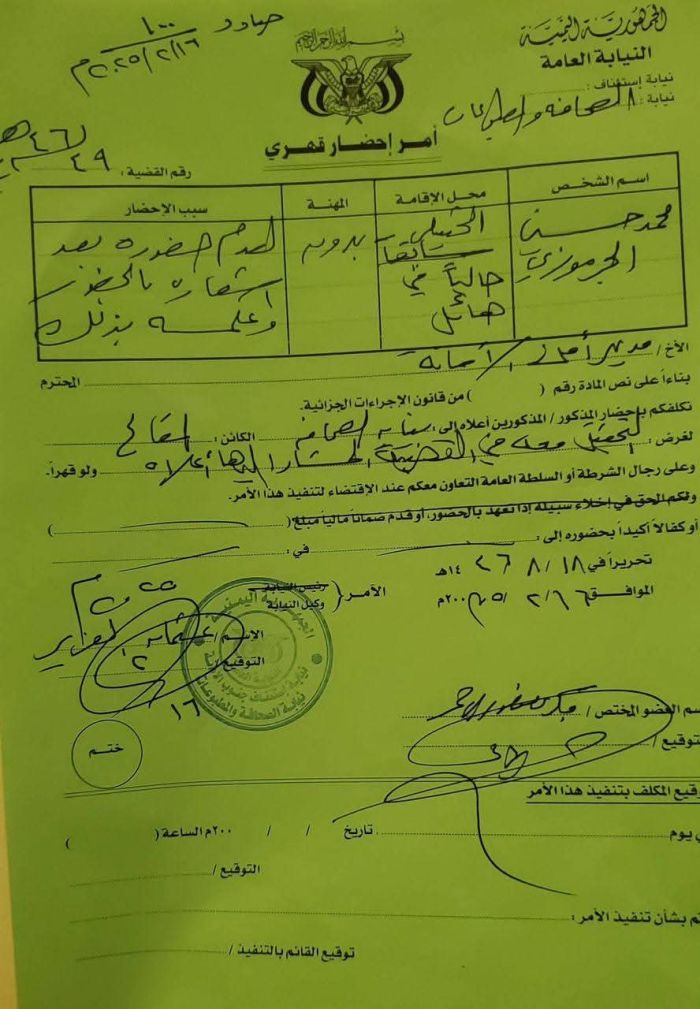 الجمهورية اليمنية
النيابة العامة
نيابة إستئناف :
نيابة : الصحافة والمطبوعات
بسم الله الرحمن الرحيم
صادر ١٠٠
٢٠٢٥/٢/١٦م
أمر إحضار قهري
رقم القضية : ٤٩ لسنة ٤٦هـ
اسم الشخص
محل الإقامة
المهنة
سبب الإحضار
محمد حسن الجرموزي
سابقا
حالياً في هائل
بدون
لعدم حضوره بعد
اشعاره بالحضور
وعلمه بذلك
الأخ / مدير أمن الأمانة
المحترم
بناءاً على نص المادة رقم ( ) من قانون الإجراءات الجزائية.
نكلفكم بإحضار المذكور / المذكورين أعلاه إلى : نيابة الصحافة الكائن :
لغرض : التحقيق معه في القضية المشار اليها أعلاه ولو قهراً.
وعلى رجال الشرطة أو السلطة العامة التعاون معكم عند الإقتضاء لتنفيذ هذا الأمر.
ولكم الحق في إخلاء سبيله إذا تعهد بالحضور، أو قدم ضماناً مالياً مبلغ ( )
أو كفالاً أكيداً بحضوره إلى : في :
تحريراً في ١٨/ ٨ / ١٤٤٦هـ
الموافق ١٦/ ٢/ ٢٠٢٥م
الأمر ( رئيس النيابة
وكيل النيابة
الاسم /
التوقيع /
الجمهورية اليمنية
نيابة استئناف جنوب الأمانة
نيابة الصحافة والمطبوعات
ختم
سم العضو المختص /
لتوقيع /
قيع المكلف بتنفيذ هذا الأمر
ي يوم تاريخ / / ٢٠٠م الساعة ( )
التوقيع /
تم بشأن تنفيذ الأمر :
توقيع القائم بالتنفيذ /